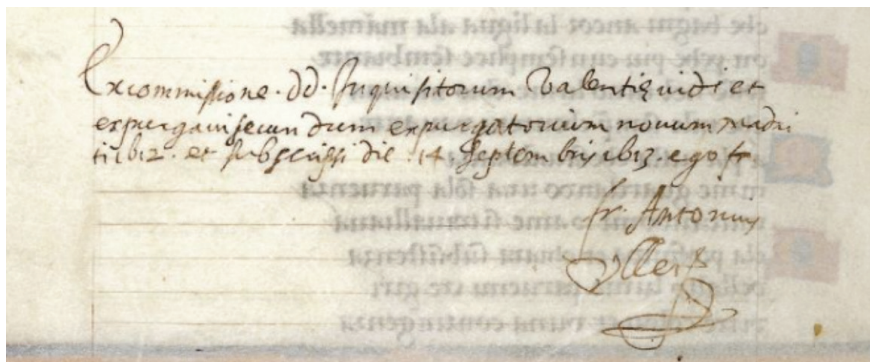 Ex commissione. dd. Inquisitorum Valentię vidi et
expurgavi secundum expurgatorium novum Madri
ti 1612. et subscripsi die. 14 Septembris 1613. ego fr
fr. Antonius
Ollers